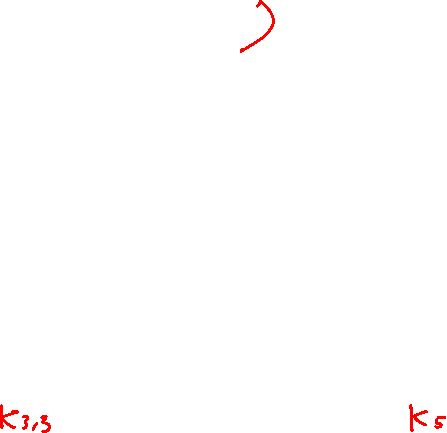 K3,3 K5